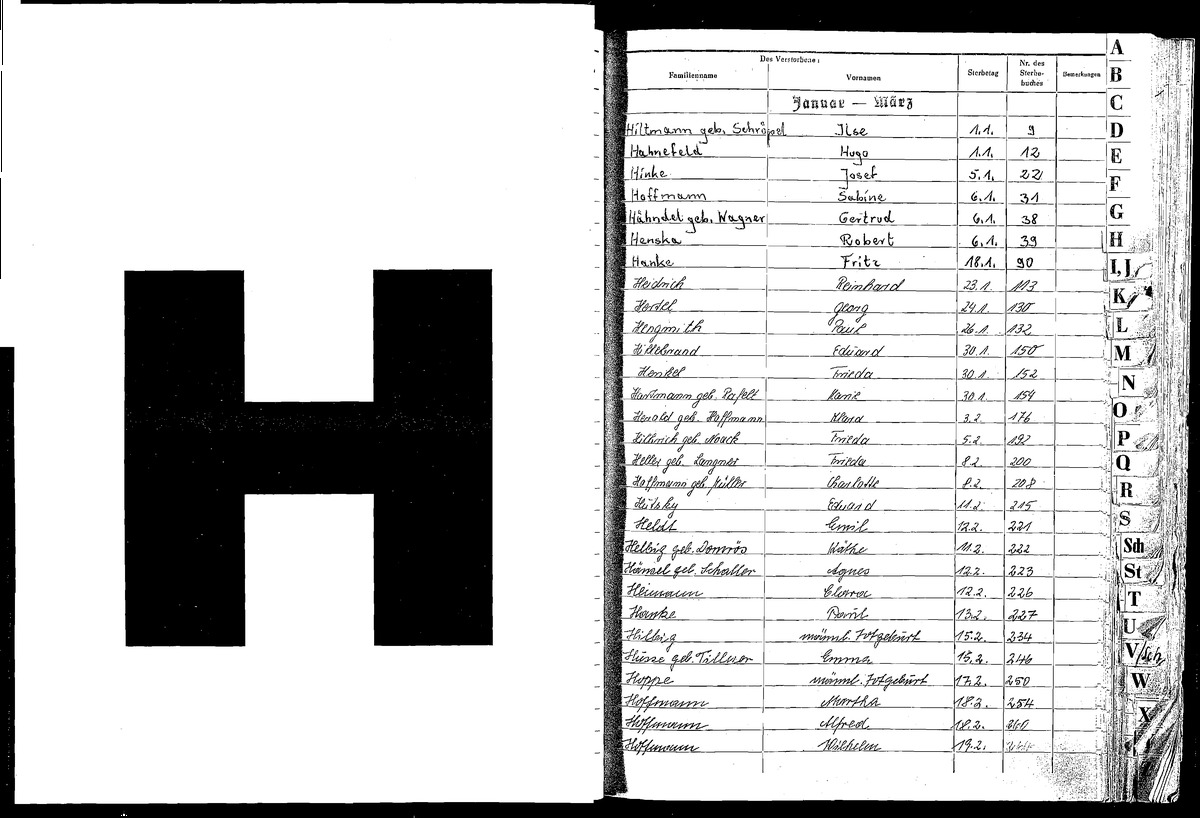 H
Des Verstorbenen
Familienname Vornamen Sterbetag Nr. des Sterbe-buches Bemerkungen
Januar — März
Hiltmann geb. Schröpel Ilse 1.1. 9
Hahnefeld Hugo 1.1. 12
Hinke Josef 5.1. 22
Hoffmann Sabine 6.1. 31
Hähndel geb. Wagner Gertrud 6.1. 38
Henska Robert 6.1. 39
Hanke Fritz 18.1. 90
Heidrich Reinhard 23.1. 113
Hertel Georg 24.1. 130
Hengmith Paul 26.1. 132
Hillebrand Eduard 30.1. 150
Henkel Frieda 30.1. 152
Hartmann geb. 30.1. 154
Herold geb. Hoffmann Klara 3.2. 176
geb. Noack Frieda 5.2. 192
Heller geb. Langner Frieda 8.2. 200
Hoffmann geb. Müller Charlotte 8.2. 208
Eduard 11.2. 215
Heldt Emil 12.2. 221
Helbig geb. Domrös Käthe 11.2. 222
Hänsel geb. Schaller Agnes 12.2. 223
Heimann Clara 12.2. 226
Hanke Paul 13.2. 227
Hilbig männl. Totgeburt 15.2. 234
geb. Tillner Emma 15.2. 246
Hoppe männl. Totgeburt 17.2. 250
Hoffmann Martha 18.2. 254
Hoffmann Alfred 18.2. 260
Hoffmann Wilhelm 19.2.
A
B
C
D
E
F
G
H
I, J
K
L
M
N
O
P
Q
R
S
Sch
St
T
U
V/Sch
W
X